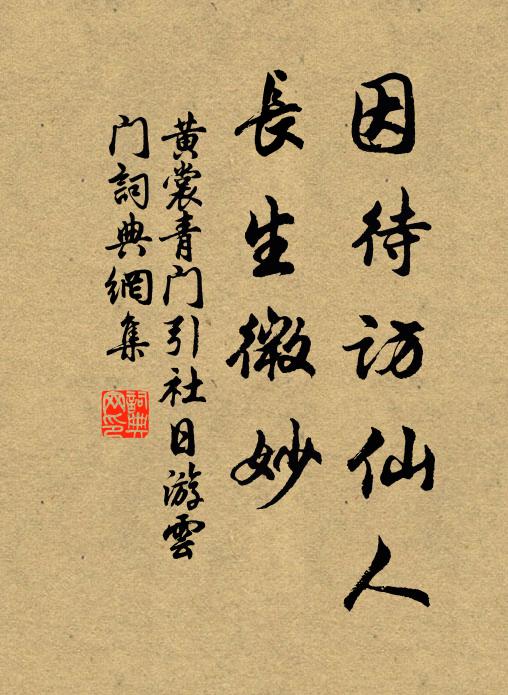 因待访仙人
長生微妙
黄裳青门引社日游雲
门詞典網集
詞典
网印